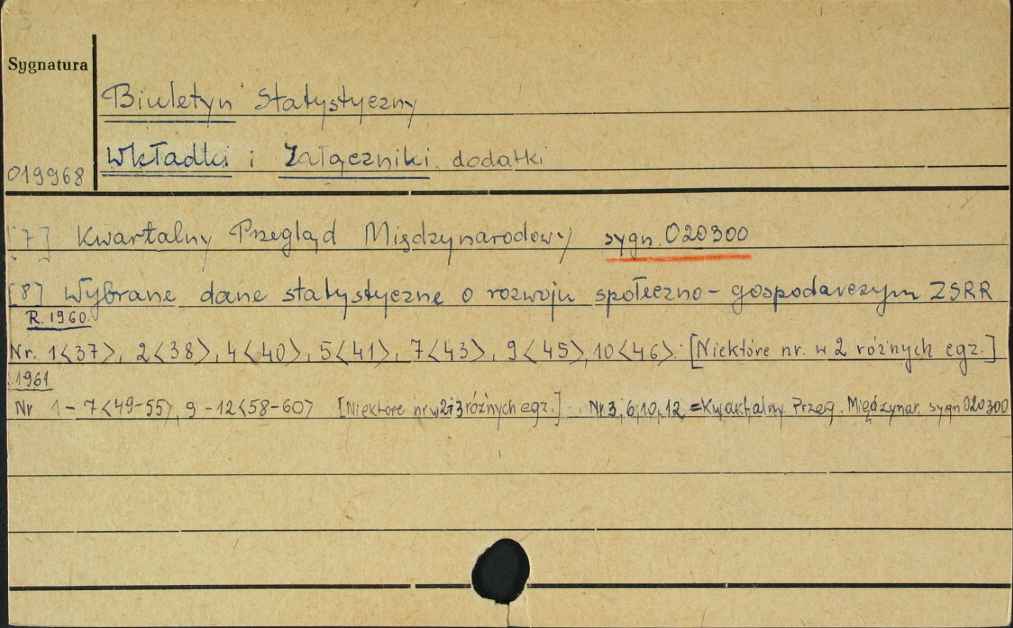 Sygnatura
Biuletyn Statystyczny
Wkładki i Załączniki. dodatki
019968
[7] Kwartalny Przegląd Międzynarodowy sygn. 020300
[8] Wybrane dane statystyczne o rozwoju społeczno-gospodarczym ZSRR
R. 1960.
Nr. 1<37>, 2<38>, 4<40>, 5<41>, 7<43>, 9<45>, 10<46>. [Niektóre nr. w 2 różnych egz.]
1961
Nr 1-7<49-55>, 9-12<58-60> [Niektóre nr w 2 i 3 różnych egz.] Nr 3, 6, 10, 12, =Kwartalny Przegl. Międzynar. sygn 020300